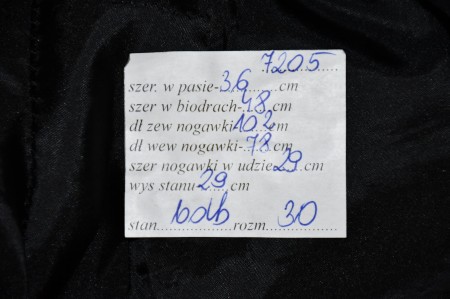 7205
szer. w pasie-36........cm
szer w biodrach-48.cm
dł zew nogawki-102cm
dł wew nogawki-.78.cm
szer nogawki w udzie 29.cm
wys stanu 29.cm
stan bdb rozm 30